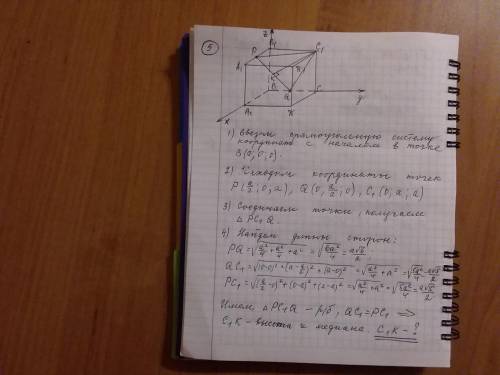 5
z
P
C₁
A₁
K
Q
C
y
A
x
1) Введём прямоугольную систему
координат с началом в точке
B(0;0;0).
2) Находим координаты точек
P(a/2; 0; a), Q(0; a/2; 0), C₁(0; a; a)
3) Соединяем точки, получаем
△ PC₁Q.
4) Найдём длины сторон:
PQ = √(a²/4 + a²/4 + a²) = √(6a²/4) = a√6/2
QC₁ = √((0-0)² + (a - a/2)² + (a-0)²) = √(a²/4 + a²) = √(5a²/4) = a√5/2
PC₁ = √((a/2 - 0)² + (0-a)² + (a-a)²) = √(a²/4 + a²) = √(5a²/4) = a√5/2
Имеем △ PC₁Q - р/б, QC₁ = PC₁ ⇒
C₁K - высота и медиана. C₁K - ?